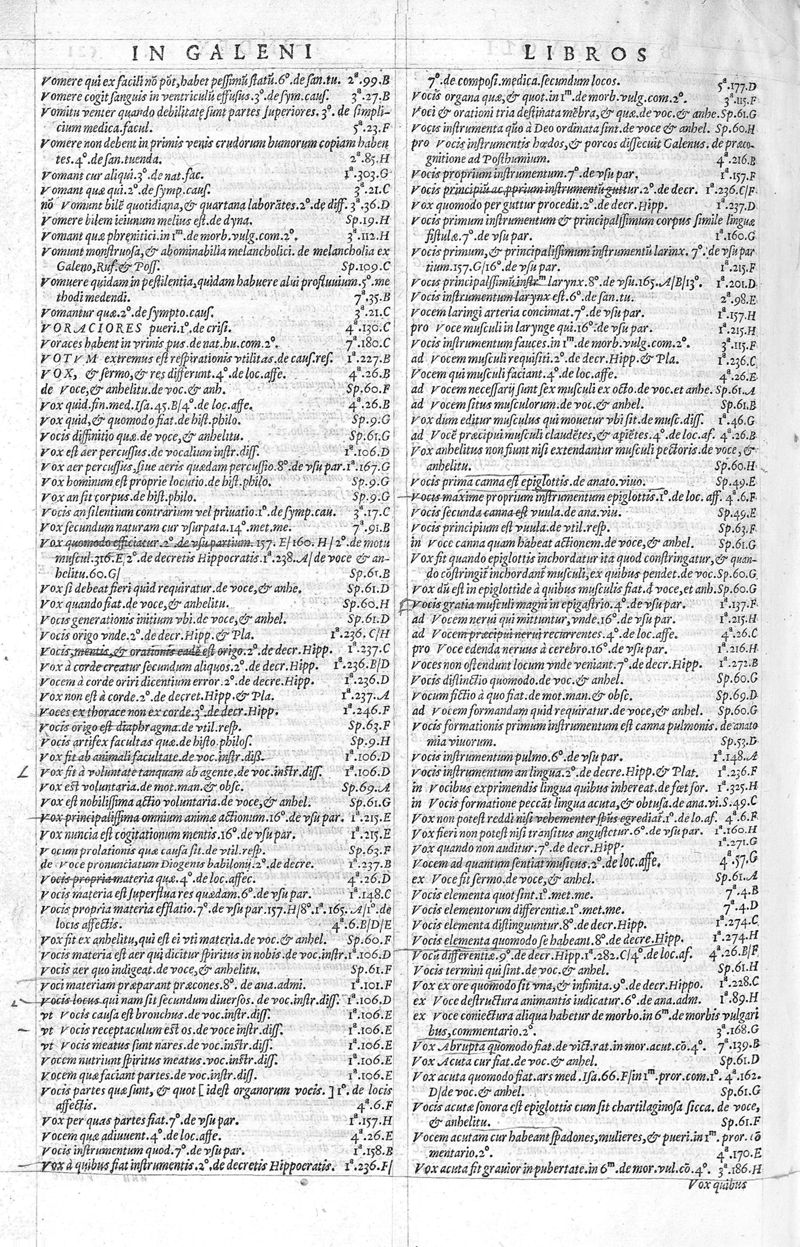 IN GALENI
Vomere qui ex facili nō pōt, habet pessimū statū. 6º. de san. tu. 2ª.99.B
Vomere cogit sanguis in ventriculū effusus. 3º. de sym. caus. 3ª.27.B
Vomitu venter quando debilitatę sunt partes superiores. 3º. de simpli-
cium medica. facul. 5ª.23.F
Vomere non debent in primis venis crudorum humorum copiam haben
tes. 4º. de san. tuenda. 2ª.85.H
Vomant cur aliqui. 3º. de nat. fac. 1ª.303.G
Vomant quæ qui. 2º. de symp. caus. 3ª.21.C
nō Vomunt bilē quotidiana, & quartana laborātes. 2º. de diff. 3ª.36.D
Vomere bilem ieiunum melius est. de dyna. Sp.19.H
Vomant quæ phrenitici. in 1m. de morb. vulg. com. 2º. 3ª.112.H
Vomunt monstruosa, & abominabilia melancholici. de melancholia ex
Galeno, Ruf. & Poss. Sp.109.C
Vomuere quidam in pestilentia, quidam habuere alui profluuium. 5º. me
thodi medendi. 7ª.35.B
Vomantur quæ. 2º. de sympto. caus. 3ª.21.C
VORACIORES pueri. 1º. de crisi. 4ª.130.C
Voraces habent in vrinis pus. de nat. hu. com. 2º. 7ª.180.C
VOTVM extremus est respirationis vtilitas. de cau. res. 1ª.227.B
VOX, & sermo, & res differunt. 4º. de loc. affe. 4ª.26.B
de Voce, & anhelitu. de voc. & anh. Sp.60.F
Vox quid. fin. med. Isa. 45. B/4º. de loc. affe. 4ª.26.B
Vox quid, & quomodo fiat. de hist. philo. Sp.9.G
Vocis diffinitio quæ. de voce, & anhelitu. Sp.61.G
Vox est aer percussus. de vocalium instr. diss. 1ª.106.D
Vox aer percussus, siue aeris quædam percussio. 8º. de vsu par. 1ª.167.G
Vox hominum est proprie locutio. de hist. philo. Sp.9.G
Vox an sit corpus. de hist. philo. Sp.9.G
Vocis an silentium contrarium vel priuatio. 1º. de symp. cau. 3ª.17.C
Vox secundum naturam cur vsurpata. 14º. met. me. 7ª.91.B
Vox quomodo efficiatur. 2º. de vsu partium. 157. E/160. H/2º. de motu
muscul. 316. E/2º. de decretis Hippocratis. 1ª.238.A/de voce & an-
helitu. 60. G/ Sp.61.B
Vox si debeat fieri quid requiratur. de voce, & anhe. Sp.61.D
Vox quando fiat. de voce, & anhelitu. Sp.60.H
Vocis generationis initium vbi. de voce, & anhel. Sp.61.D
Vocis origo vnde. 2º. de decr. Hipp. & Pla. 1ª.236.C/H
Vocis, mentis, & orationis eadē est origo. 2º. de decr. Hipp. 1ª.237.C
Vox à corde creatur secundum aliquos. 2º. de decr. Hipp. 1ª.236.B/D
Vocem à corde oriri dicentium error. 2º. de decre. Hipp. 1ª.236.D
Vox non est à corde. 2º. de decret. Hipp. & Pla. 1ª.237.A
Voces ex thorace non ex corde. 3º. de decr. Hipp. 1ª.246.F
Vocis origo est diaphragma. de vtil. resp. Sp.63.F
Vocis artifex facultas quæ. de histo. philos. Sp.9.H
Vox fit ab animali facultate. de voc. instr. diss. 1ª.106.D
Vox fit à voluntate tanquam ab agente. de voc. instr. diss. 1ª.106.D
Vox est voluntaria. de mot. man. & obsc. Sp.69.A
Vox est nobilissima actio voluntaria. de voce, & anhel. Sp.61.G
Vox principalissima omnium animæ actionum. 16º. de vsu par. 1ª.215.E
Vox nuncia est cogitationum mentis. 16º. de vsu par. 1ª.215.E
Vocum prolationis quæ causa sit. de vtil. resp. Sp.63.F
de Voce pronunciatum Diogenis babilonij. 2º. de decre. 1ª.237.B
Vocis propria materia quæ. 4º. de loc. affec. 4ª.26.D
Vocis materia est superflua res quædam. 6º. de vsu par. 1ª.148.C
Vocis propria materia efflatio. 7º. de vsu par. 157. H/8º. 1ª.165. A/1º. de
locis affectis. 4ª.6.B/D/E
Vox fit ex anhelitu, qui est ei vti materia. de voc. & anhel. Sp.60.F
Vocis materia est aer qui dicitur spiritus in nobis. de voc. instr. 1ª.106.D
Vocis aer quo indigeat. de voce, & anhelitu. Sp.61.F
Voci materiam præparant præcones. 8º. de ana. admi. 1ª.101.F
Vocis locus qui nam sit secundum diuersos. de voc. instr. diss. 1ª.106.D
vt Vocis causa est bronchus. de voc. instr. diss. 1ª.106.E
vt Vocis receptaculum est os. de voce instr. diss. 1ª.106.E
vt Vocis meatus sunt nares. de voc. instr. diss. 1ª.106.E
Vocem nutriunt spiritus meatus. voc. instr. diss. 1ª.106.E
Vocem quæ faciant partes. de voc. instr. diss. 1ª.106.E
Vocis partes quæ sunt, & quot [idest organorum vocis.] 1º. de locis
affectis. 4ª.6.F
Vox per quas partes fiat. 7º. de vsu par. 1ª.157.H
Vocem quæ adiuuent. 4º. de loc. affe. 4ª.26.E
Vocis instrumentum quod. 7º. de vsu par. 1ª.158.B
Vox à quibus fiat instrumentis. 2º. de decretis Hippocratis. 1ª.236.F/
LIBROS
7º. de composi. medica. secundum locos. 5ª.177.D
Vocis organa quæ, & quot. in 1m. de morb. vulg. com. 2º. 3ª.115.F
Voci & orationi tria destinata mēbra, & quæ. de voc. & anhe. Sp.61.G
Vocis instrumenta quō à Deo ordinata sint. de voce & anhel. Sp.60.H
pro Vocis instrumentis hœdos, & porcos dissecuit Galenus. de præco-
gnitione ad Posthumium. 4ª.216.B
Vocis proprium instrumentum. 7º. de vsu par. 1ª.157.F
Vocis principiū ac primum instrumentū guttur. 2º. de decr. 1ª.236.C/F
Vox quomodo per guttur procedit. 2º. de decr. Hipp. 1ª.237.D
Vocis primum instrumentum & principalissimum corpus simile linguæ
fistulæ. 7º. de vsu par. 1ª.160.G
Vocis primum, & principalissimum instrumentū larinx. 7º. de vsu par
tium. 157. G/16º. de vsu par. 1ª.215.F
Vocis principalissimū instrm. larynx. 8º. de vsu. 165. A/B/13º. 1ª.201.D
Vocis instrumentum larynx est. 6º. de san. tu. 2ª.98.E
Vocem laringi arteria concinnat. 7º. de vsu par. 1ª.157.H
pro Voce musculi in larynge qui. 16º. de vsu par. 1ª.215.H
Vocis instrumentum fauces. in 1m. de morb. vulg. com. 2º. 3ª.115.F
ad Vocem musculi requisiti. 2º. de decr. Hipp. & Pla. 1ª.236.C
Vocem qui musculi faciant. 4º. de loc. affe. 4ª.26.E
ad Vocem necessarij sunt sex musculi ex octo. de voc. et anhe. Sp.61.A
ad Vocem situs musculorum. de voc. & anhel. Sp.61.B
Vox dum editur musculus qui mouetur vbi sit. de musc. diss. 1ª.46.G
ad Vocē præcipui musculi claudētes, & apiētes. 4º. de loc. af. 4ª.26.B
Vox anhelitus non fiunt nisi extendantur musculi pectoris. de voce, &
anhelitu. Sp.60.H
Vocis prima canna est epiglottis. de anato. viuo. Sp.49.E
Vocis maxime proprium instrumentum epiglottis. 1º. de loc. aff. 4ª.6.F
Vocis secunda canna est vuula. de ana. viu. Sp.49.E
Vocis principium est vuula. de vtil. resp. Sp.63.F
in Voce canna quam habeat actionem. de voce, & anhel. Sp.61.G
Vox fit quando epiglottis inchordatur ita quod constringatur, & quan-
do cōstringit inchordant musculi, ex quibus pendet. de voc. Sp.60.G
Vox dū est in epiglottide à quibus musculis fiat. d voce, et anh. Sp.60.G
Vocis gratia musculi magni in epigastrio. 4º. de vsu par. 1ª.137.F
ad Vocem nerui qui mittuntur, vnde. 16º. de vsu par. 1ª.215.H
ad Vocem præcipui nerui recurrentes. 4º. de loc. affe. 4ª.26.C
pro Voce edenda neruus à cerebro. 16º. de vsu par. 1ª.216.H
Voces non ostendunt locum vnde veniant. 7º. de decr. Hipp. 1ª.272.B
Vocis distinctio quomodo. de voc. & anhel. Sp.60.G
Vocum fictio à quo fiat. de mot. man. & obsc. Sp.69.D
ad Vocem formandam quid requiratur. de voce, & anhel. Sp.60.G
Vocis formationis primum instrumentum est canna pulmonis. de anato
mia viuorum. Sp.53.D
Vocis instrumentum pulmo. 6º. de vsu par. 1ª.148.A
Vocis instrumentum an lingua. 2º. de decre. Hipp. & Plat. 1ª.236.F
in Vocibus exprimendis lingua quibus inhereat. de fœt. for. 1ª.325.H
in Vocis formatione peccāt lingua acuta, & obtusa. de ana. vi. S.49.C
Vox non potest reddi nisi vehementer spūs egrediat. 1º. de lo. af. 4ª.6.F
Vox fieri non potest nisi transitus angustetur. 6º. de vsu par. 1ª.160.H
Vox quando non auditur. 7º. de decr. Hipp. 1ª.271.G
Vocem ad quantum sentiat musicus. 2º. de loc. affe. 4ª.57.G
ex Voce fit sermo. de voce, & anhel. Sp.61.A
Vocis elementa quot sint. 1º. met. me. 7ª.4.B
Vocis elementorum differentiæ. 1º. met. me. 7ª.4.D
Vocis elementa distinguuntur. 8º. de decr. Hipp. 1ª.274.C
Vocis elementa quomodo se habeant. 8º. de decre. Hipp. 1ª.274.H
Vocū differentiæ. 9º. de decr. Hipp. 1ª.282. C/4º. de loc. af. 4ª.26.B/F
Vocis termini qui sint. de voc. & anhel. Sp.61.H
Vox ex ore quomodo fit vna, & infinita. 9º. de decr. Hippo. 1ª.228.C
ex Voce destructa animantis iudicatur. 6º. de ana. adm. 1ª.89.H
ex Voce coniectura aliqua habetur de morbo. in 6m. de morbis vulgari
bus, commentario. 2º. 3ª.168.G
Vox Abrupta quomodo fiat. de vict. rat. in mor. acut. cō. 4º. 7ª.139.B
Vox Acuta cur fiat. de voc. & anhel. Sp.61.D
Vox acuta quomodo fiat. ars med. Isa. 66. F/in 1m. pror. com. 1º. 4ª.162.
D/de voc. & anhel. Sp.61.G
Vocis acutæ sonora est epiglottis cum sit chartilaginosa sicca. de voce,
& anhelitu. Sp.61.F
Vocem acutam cur habeant spadones, mulieres, & pueri. in 1m. pror. cō
mentario. 2º. 4ª.170.E
Vox acuta fit grauior in pubertate. in 6m. de mor. vul. cō. 4º. 3ª.186.H
Vox quibus